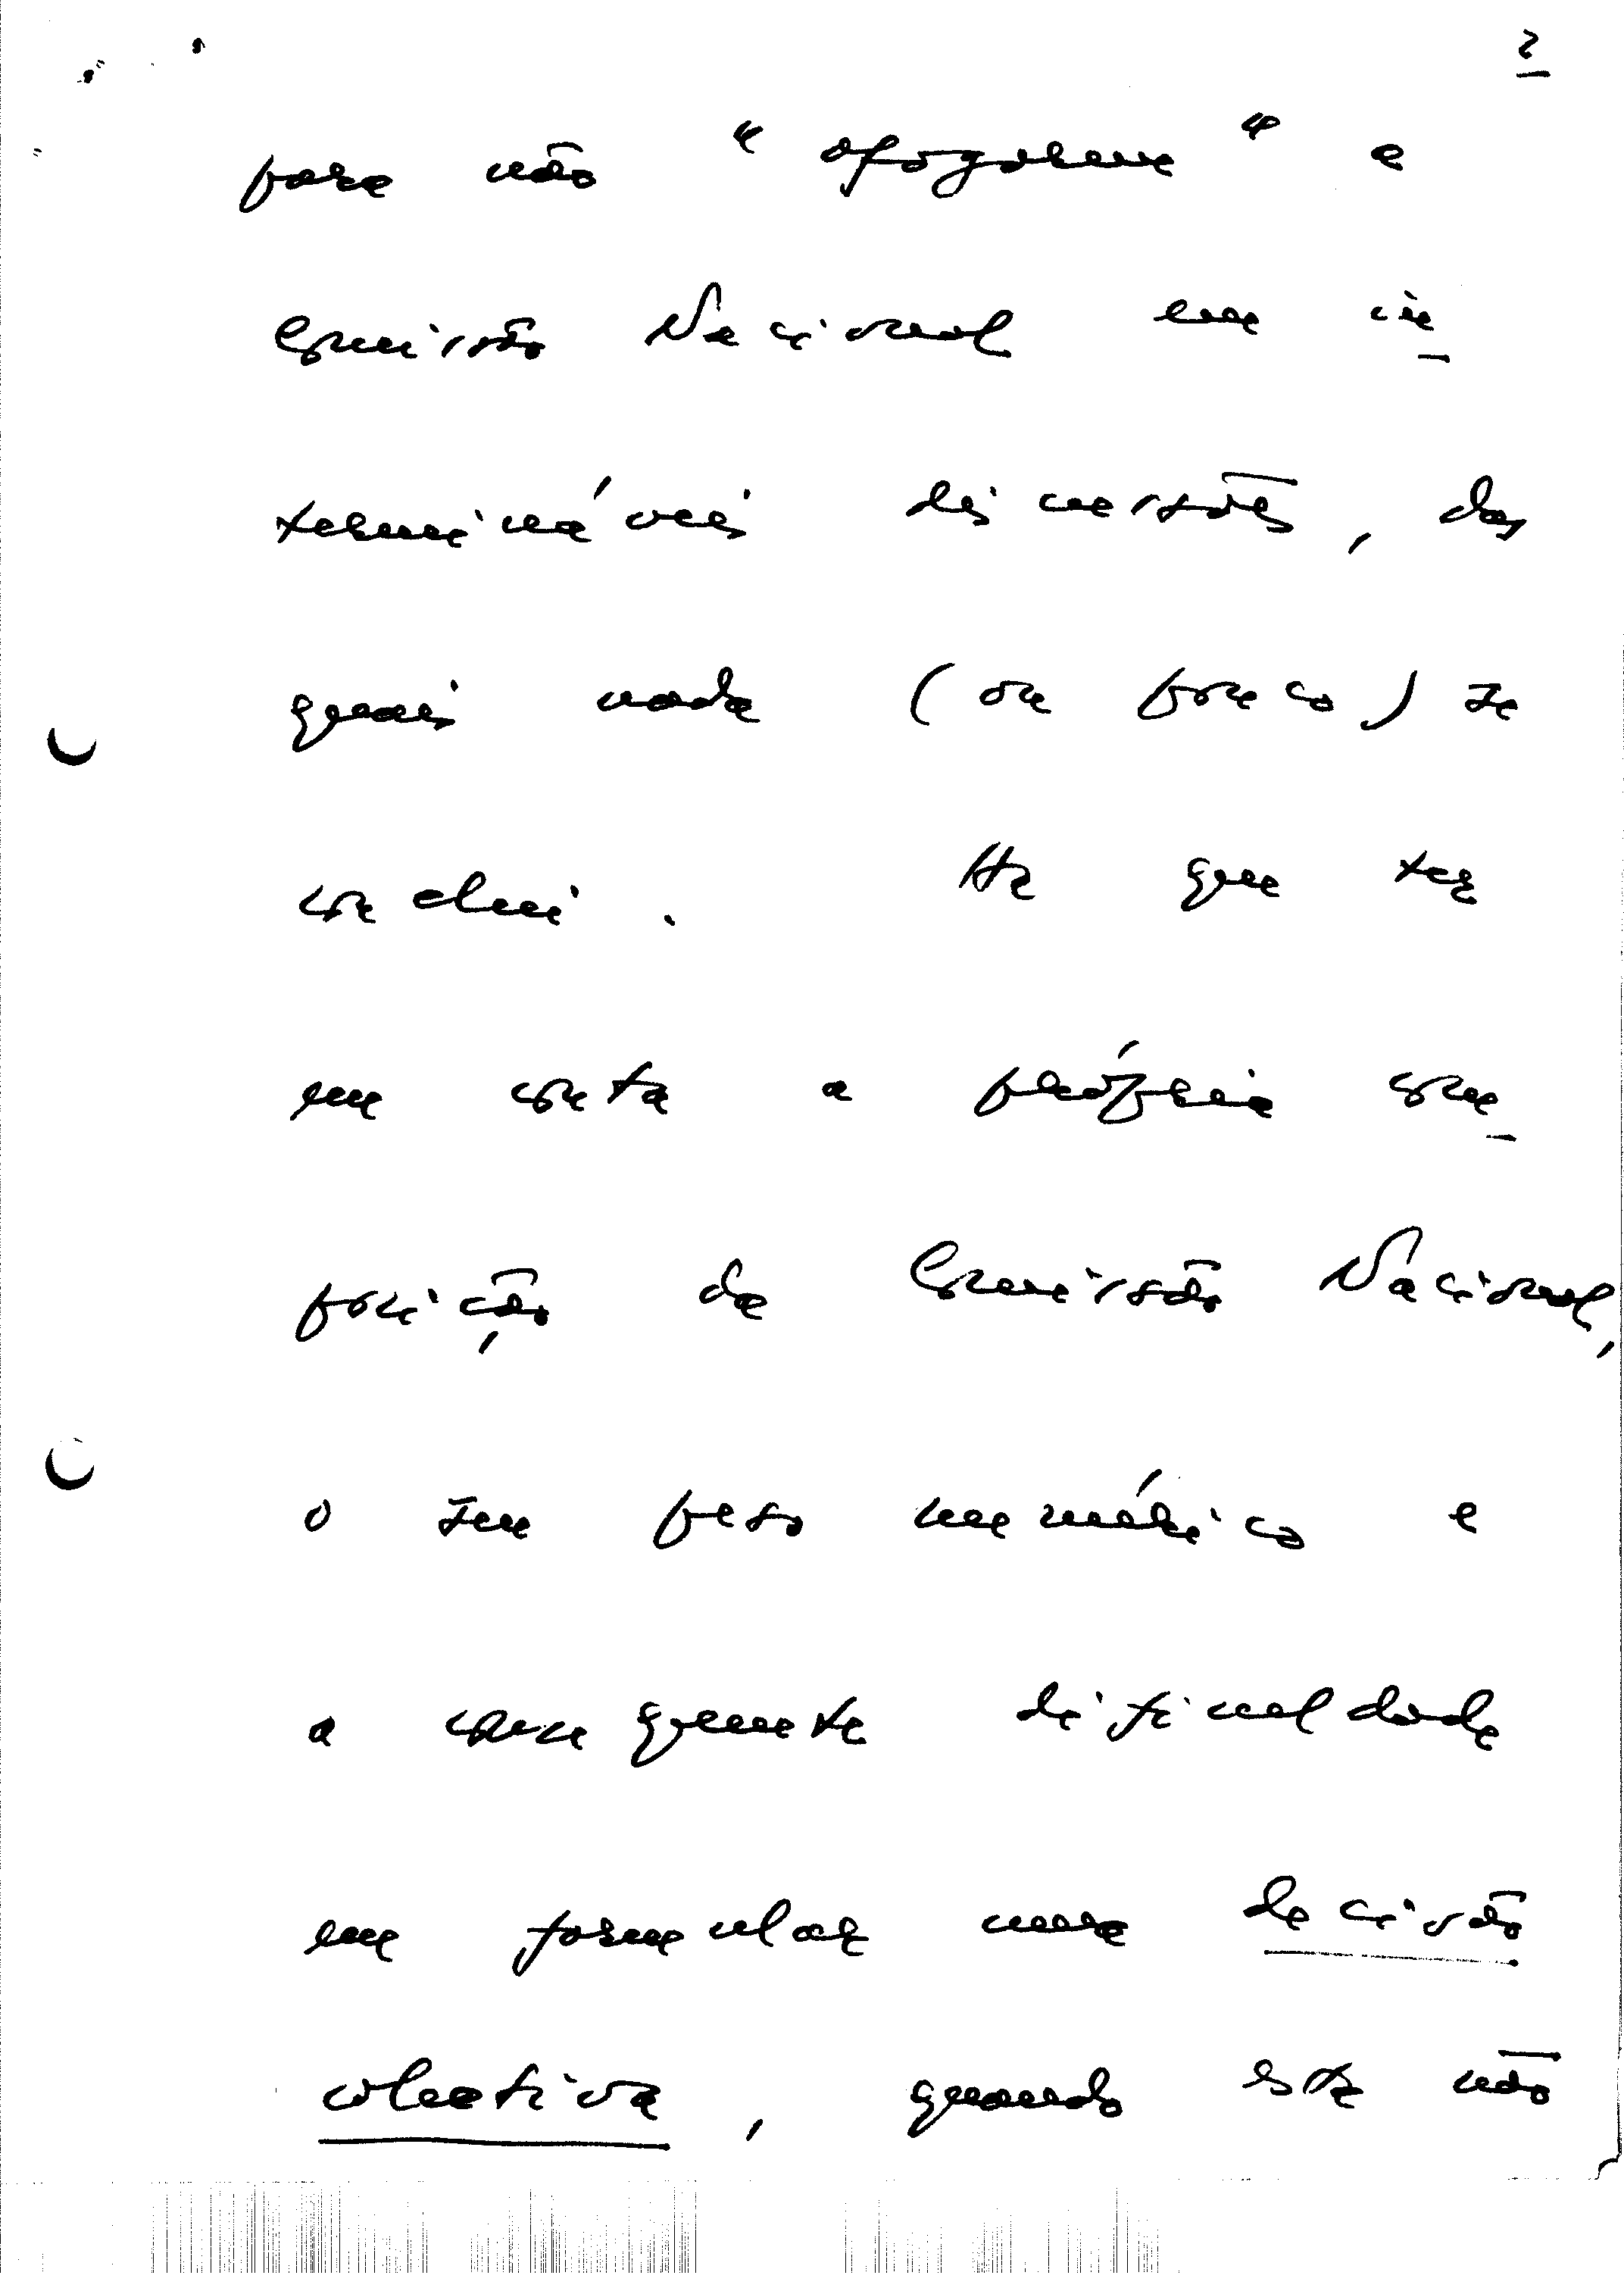 2
para não "afogarem" a
Comissão Nacional em in-
termináveis discussões, das
quais nada (ou pouco) se
conclui. Há que ter
em conta a própria com-
posição da Comissão Nacional,
o seu peso numérico e
a consequente dificuldade
em formular uma decisão
colectiva, quando esta não